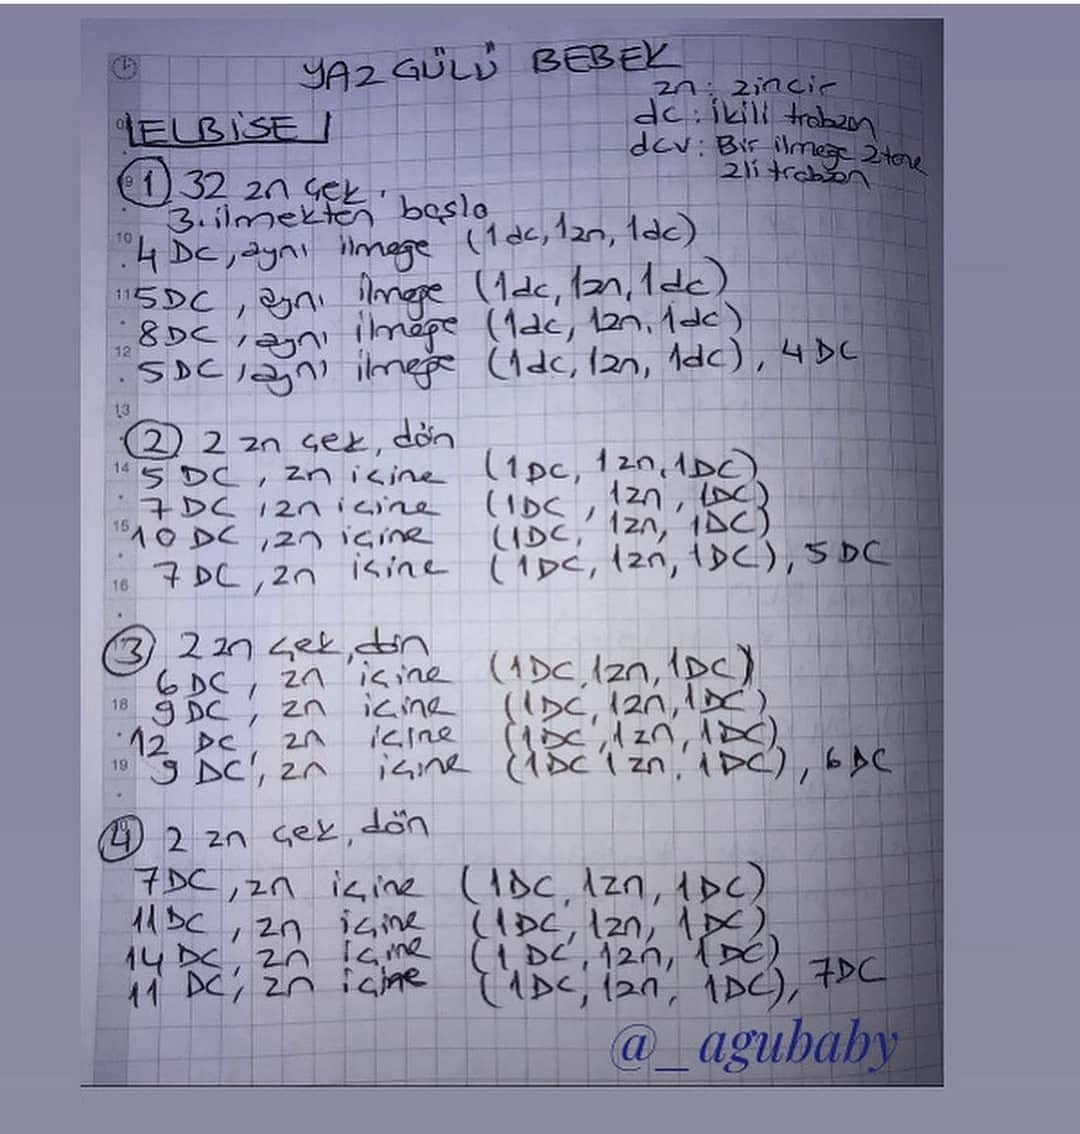 YAZ GÜLÜ BEBEK
zn: zincir
dc: ikili trabzan
dcv: Bir ilmeğe 2 tane
2li trabzan
ELBİSE
1 32 zn çek.
3. ilmekten başla
4 DC, aynı ilmeğe (1dc, 1zn, 1dc)
5DC, aynı ilmeğe (1dc, 1zn, 1dc)
8DC, aynı ilmeğe (1dc, 1zn, 1dc)
5DC, aynı ilmeğe (1dc, 1zn, 1dc), 4DC
2 2 zn çek, dön
5 DC, zn içine (1DC, 1zn, 1DC)
7 DC, zn içine (1DC, 1zn, 1DC)
10 DC, zn içine (1DC, 1zn, 1DC)
7 DC, zn içine (1DC, 1zn, 1DC), 5 DC
3 2 zn çek, dön
6 DC, zn içine (1DC, 1zn, 1DC)
9 DC, zn içine (1DC, 1zn, 1DC)
12 DC, zn içine (1DC, 1zn, 1DC)
9 DC, zn içine (1DC 1zn, 1DC), 6DC
4 2 zn çek, dön
7DC, zn içine (1DC, 1zn, 1DC)
11DC, zn içine (1DC, 1zn, 1DC)
14 DC, zn içine (1DC, 1zn, 1DC)
11 DC, zn içine (1DC, 1zn, 1DC), 7DC
@_agubaby